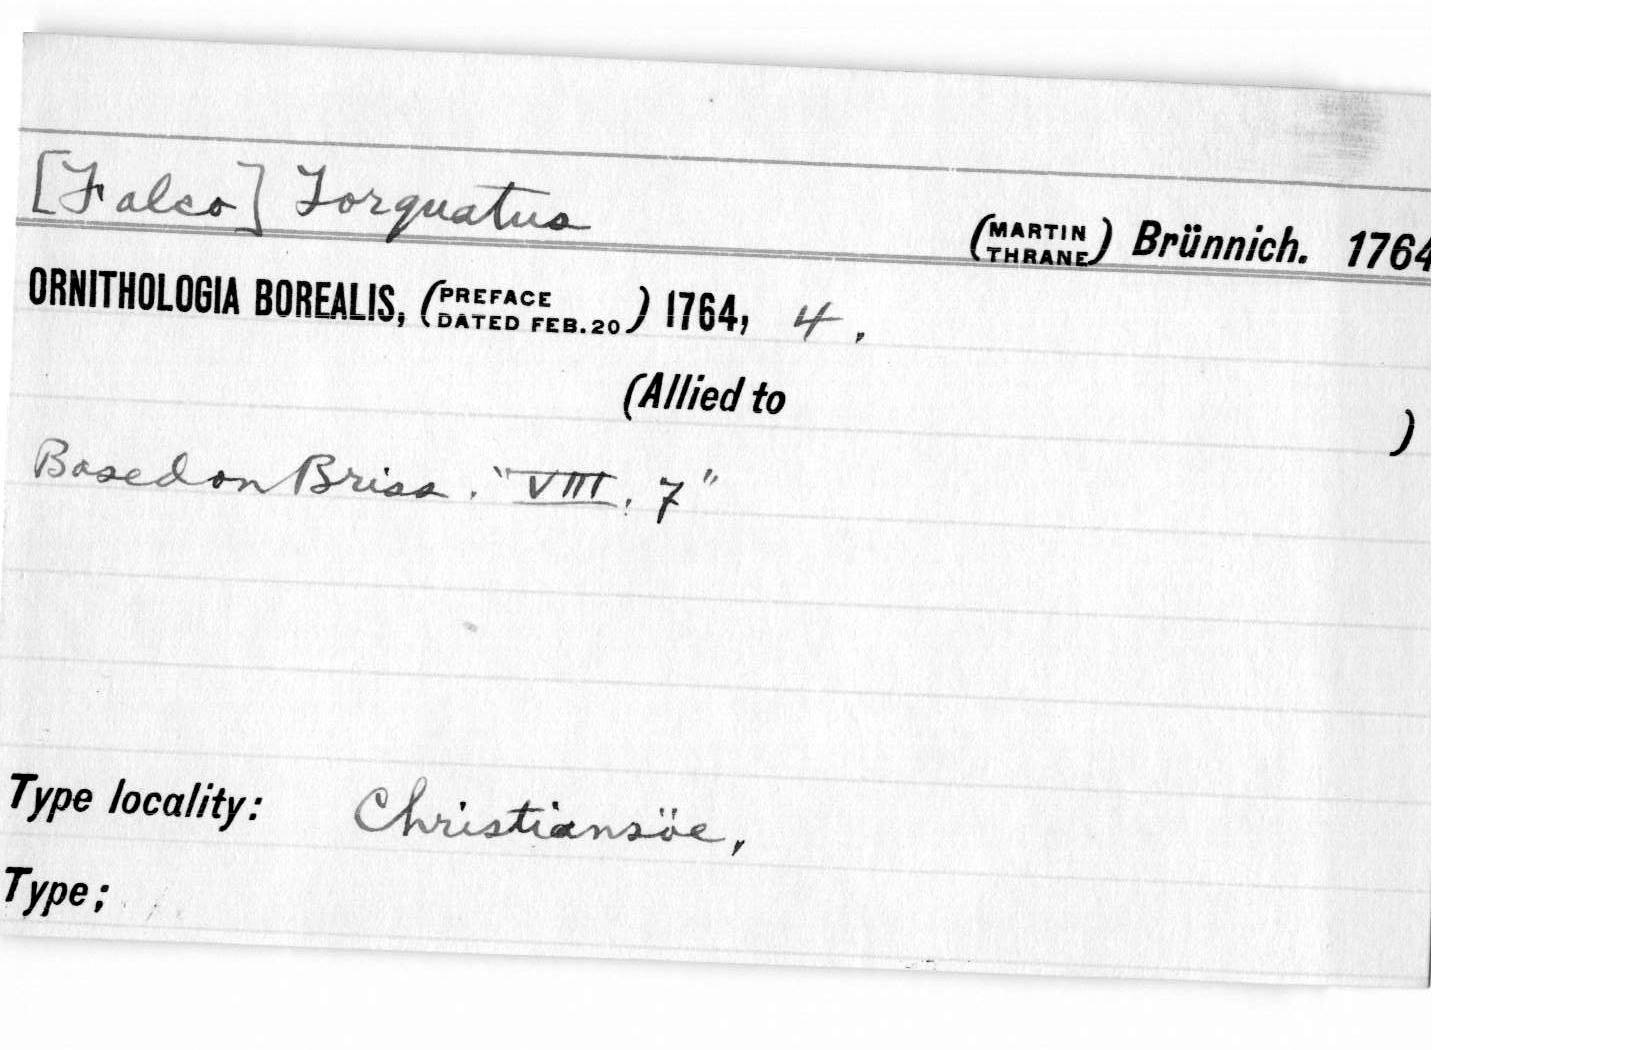 [Falco] Torquatus
(MARTIN THRANE) Brünnich. 1764
ORNITHOLOGIA BOREALIS, (PREFACE DATED FEB. 20) 1764, 4.
(Allied to )
Based on Briss. "VIII, 7"
Type locality: Christiansöe,
Type;